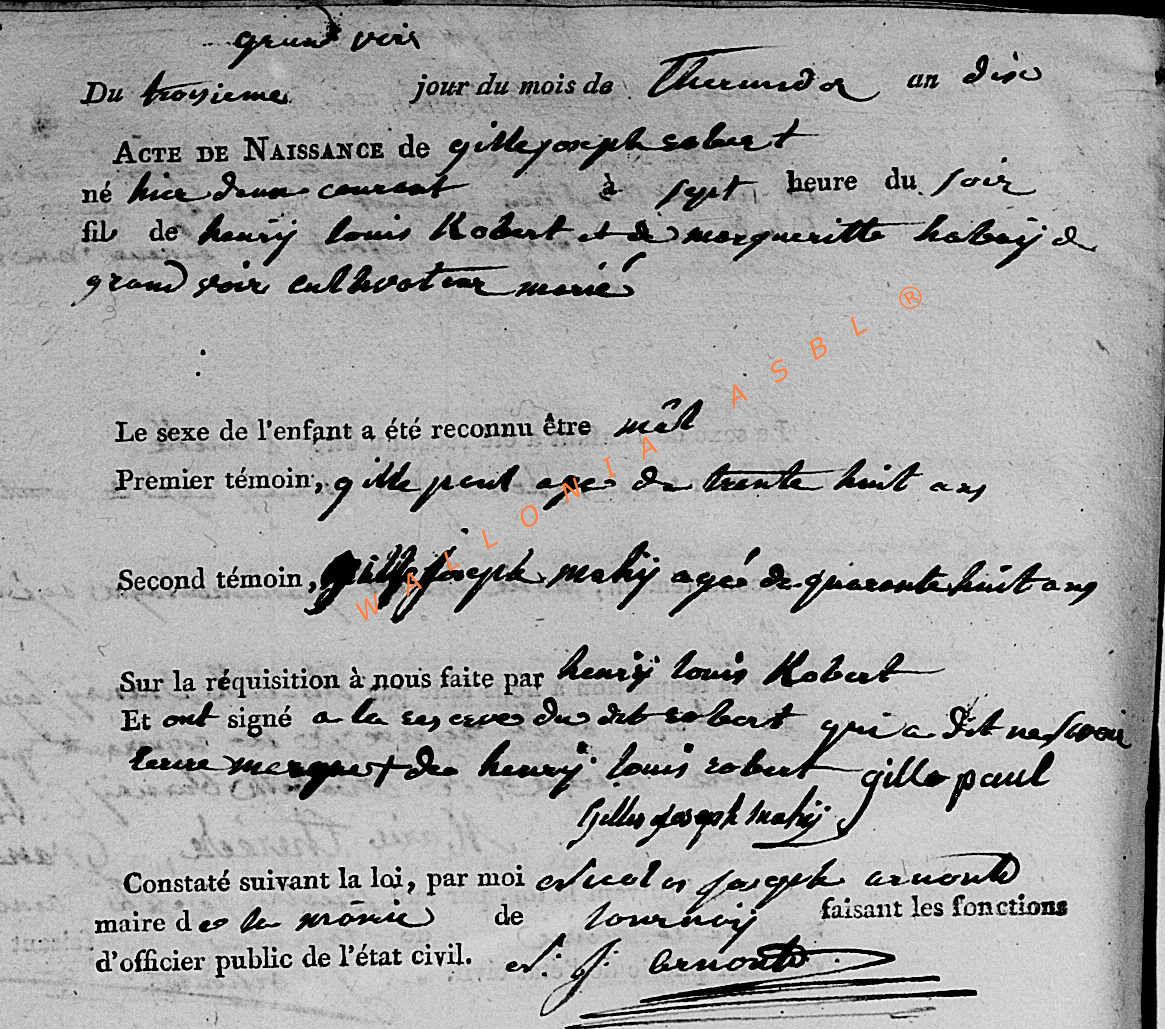 grand voir
Du troisieme jour du mois de Thermidor an dix
ACTE DE NAISSANCE de gille joseph robert
né hier deux courant à sept heure du soir
fils de henrÿ louis Robert et de margueritte habaÿ de
grand voir cultivateur marié
Le sexe de l'enfant a été reconnu être mâl
Premier témoin, gille paul agee de trente huit ans
Second témoin, gille joseph mahÿ ageé de quarante huit ans
Sur la réquisition à nous faite par henrÿ louis Robert
Et ont signé a la reserve du dit robert qui a dit ne savoir
lecrire marque + de henrÿ louis robert gille paul
Gilles joseph mahÿ
Constaté suivant la loi, par moi Nicolas joseph arnould
maire de la mairie de tournaÿ faisant les fonctions
d'officier public de l'état civil. N: J: arnould
WALLONIA ASBL ®